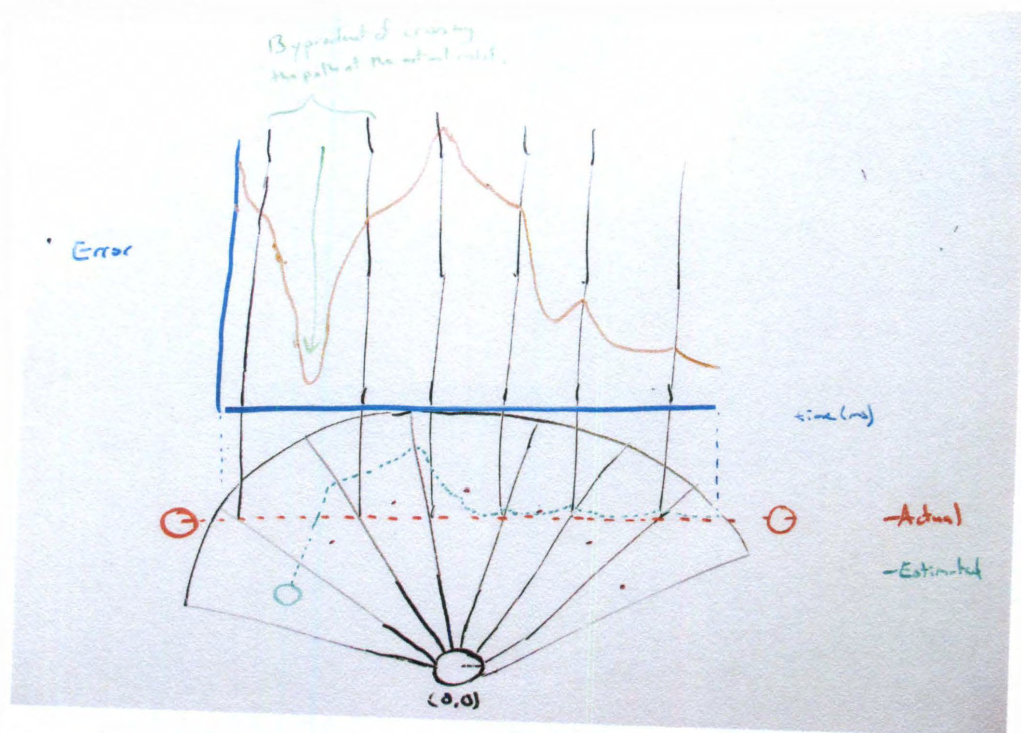 Byproduct of crossing
the path of the actual robot.
Error
time (ms)
-Actual
-Estimated
(0,0)